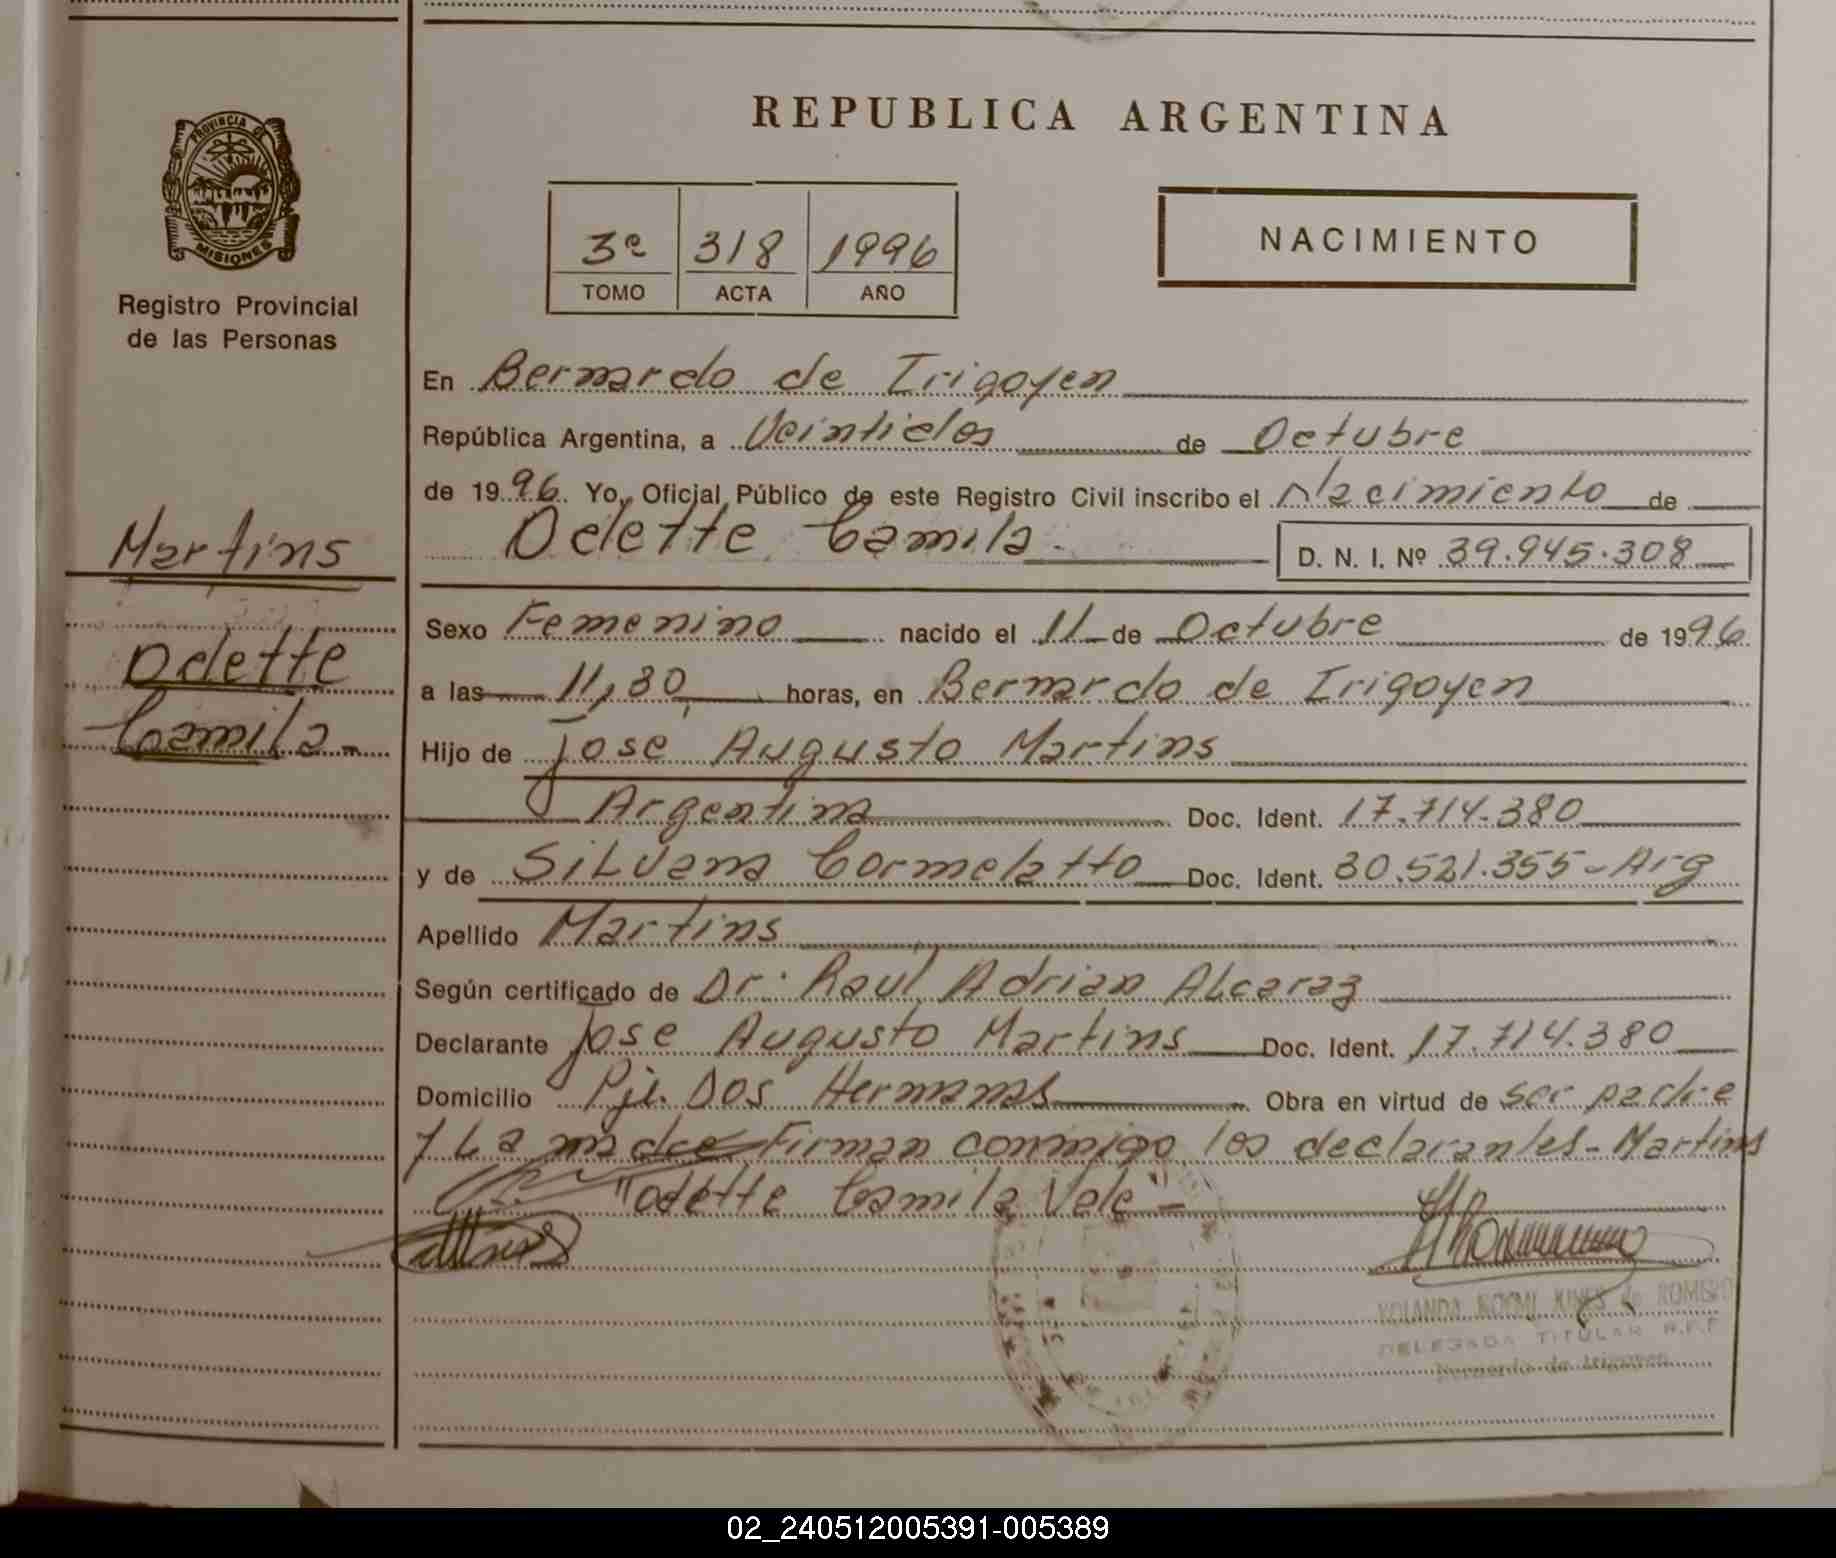 PROVINCIA DE
MISIONES
Registro Provincial
de las Personas
Martins
Odette
Camila-
REPUBLICA ARGENTINA
3º 318 1996
TOMO ACTA AÑO
NACIMIENTO
En Bernardo de Irigoyen
República Argentina, a Veintidos de Octubre
de 1996. Yo, Oficial Público de este Registro Civil inscribo el Nacimiento de
Odette Camila- D. N. I. Nº 39.945.308
Sexo Femenino nacido el 11 de Octubre de 1996
a las 11,30 horas, en Bernardo de Irigoyen
Hijo de José Augusto Martins
Argentina Doc. Ident. 17.714.380
y de SiLvana Cormelatto Doc. Ident. 30.521.355-Arg
Apellido Martins
Según certificado de Dr. Raúl Adrian Alcaraz
Declarante Jose Augusto Martins Doc. Ident. 17.714.380
Domicilio Pje. Dos Hermanas Obra en virtud de ser padre
y La madre Firman conmigo los declarantes- Martins
"Odette Camila Vale"-
YOLANDA NOEMI de ROMERO
DELEGADA TITULAR R.P.P
Bernardo de Irigoyen
02_240512005391-005389